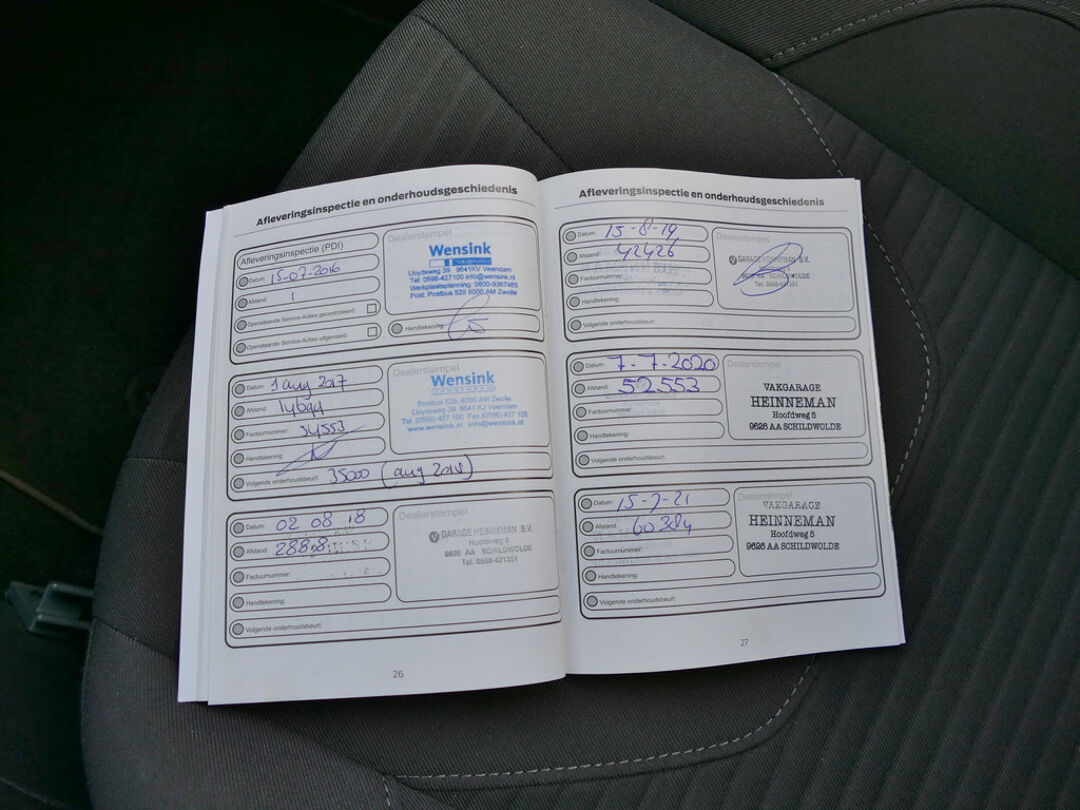 Afleveringsinspectie en onderhoudsgeschiedenis
Afleveringsinspectie (PDI)
Datum: 15-07-2016
Afstand: 1
Openstaande Service-Acties gecontroleerd:
Openstaande Service-Acties uitgevoerd:
Dealerstempel
Wensink
Lloydsweg 39 9641KV Veendam
Tel. 0598-427100 info@wensink.nl
Werkplaatsplanning: 0800-9367465
Post: Postbus 529 8000 AM Zwolle
Handtekening:
Datum: 1 aug 2017
Afstand:
Factuurnummer:
Handtekening:
Volgende onderhoudsbeurt: 35000 (aug 2018)
Dealerstempel
Wensink
Postbus 529, 8000 AM Zwolle
Lloydsweg 39, 9641 KJ Veendam
Tel. (0598) 427 100 Fax (0598) 427 105
www.wensink.nl info@wensink.nl
Datum: 02 08 18
Afstand: 28818
Factuurnummer:
Handtekening:
Volgende onderhoudsbeurt:
Dealerstempel
GARAGE HEINNEMAN B.V.
Hoofdweg 5
9626 AA SCHILDWOLDE
Tel. 0598-421351
26
Afleveringsinspectie en onderhoudsgeschiedenis
Datum: 15-8-19
Afstand: 42426
Factuurnummer:
Handtekening:
Volgende onderhoudsbeurt:
Dealerstempel
GARAGE HEINNEMAN B.V.
SCHILDWOLDE
Tel. 0598-421351
Datum: 7-7-2020
Afstand: 52553
Factuurnummer:
Handtekening:
Volgende onderhoudsbeurt:
Dealerstempel
VAKGARAGE
HEINNEMAN
Hoofdweg 5
9626 AA SCHILDWOLDE
Datum: 15-7-21
Afstand: 60384
Factuurnummer:
Handtekening:
Volgende onderhoudsbeurt:
Dealerstempel
VAKGARAGE
HEINNEMAN
Hoofdweg 5
9626 AA SCHILDWOLDE
27